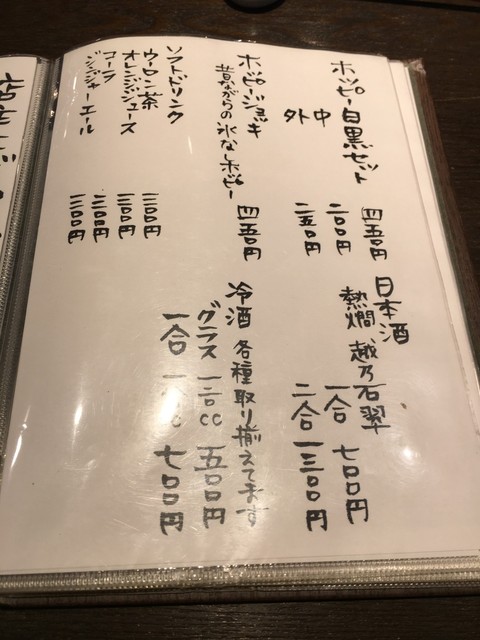 ホッピー白黒セット 四五〇円
中 二〇〇円
外 二五〇円
ホッピージョッキ 四五〇円
昔ながらの氷なしホッピー
ソフトドリンク
ウーロン茶 三〇〇円
オレンジジュース 三〇〇円
コーラ 三〇〇円
ジンジャーエール 三〇〇円
日本酒
熱燗 越乃石翠
一合 七〇〇円
二合 一三〇〇円
冷酒 各種取り揃えてます
グラス 一二〇cc 五〇〇円
一合 七〇〇円